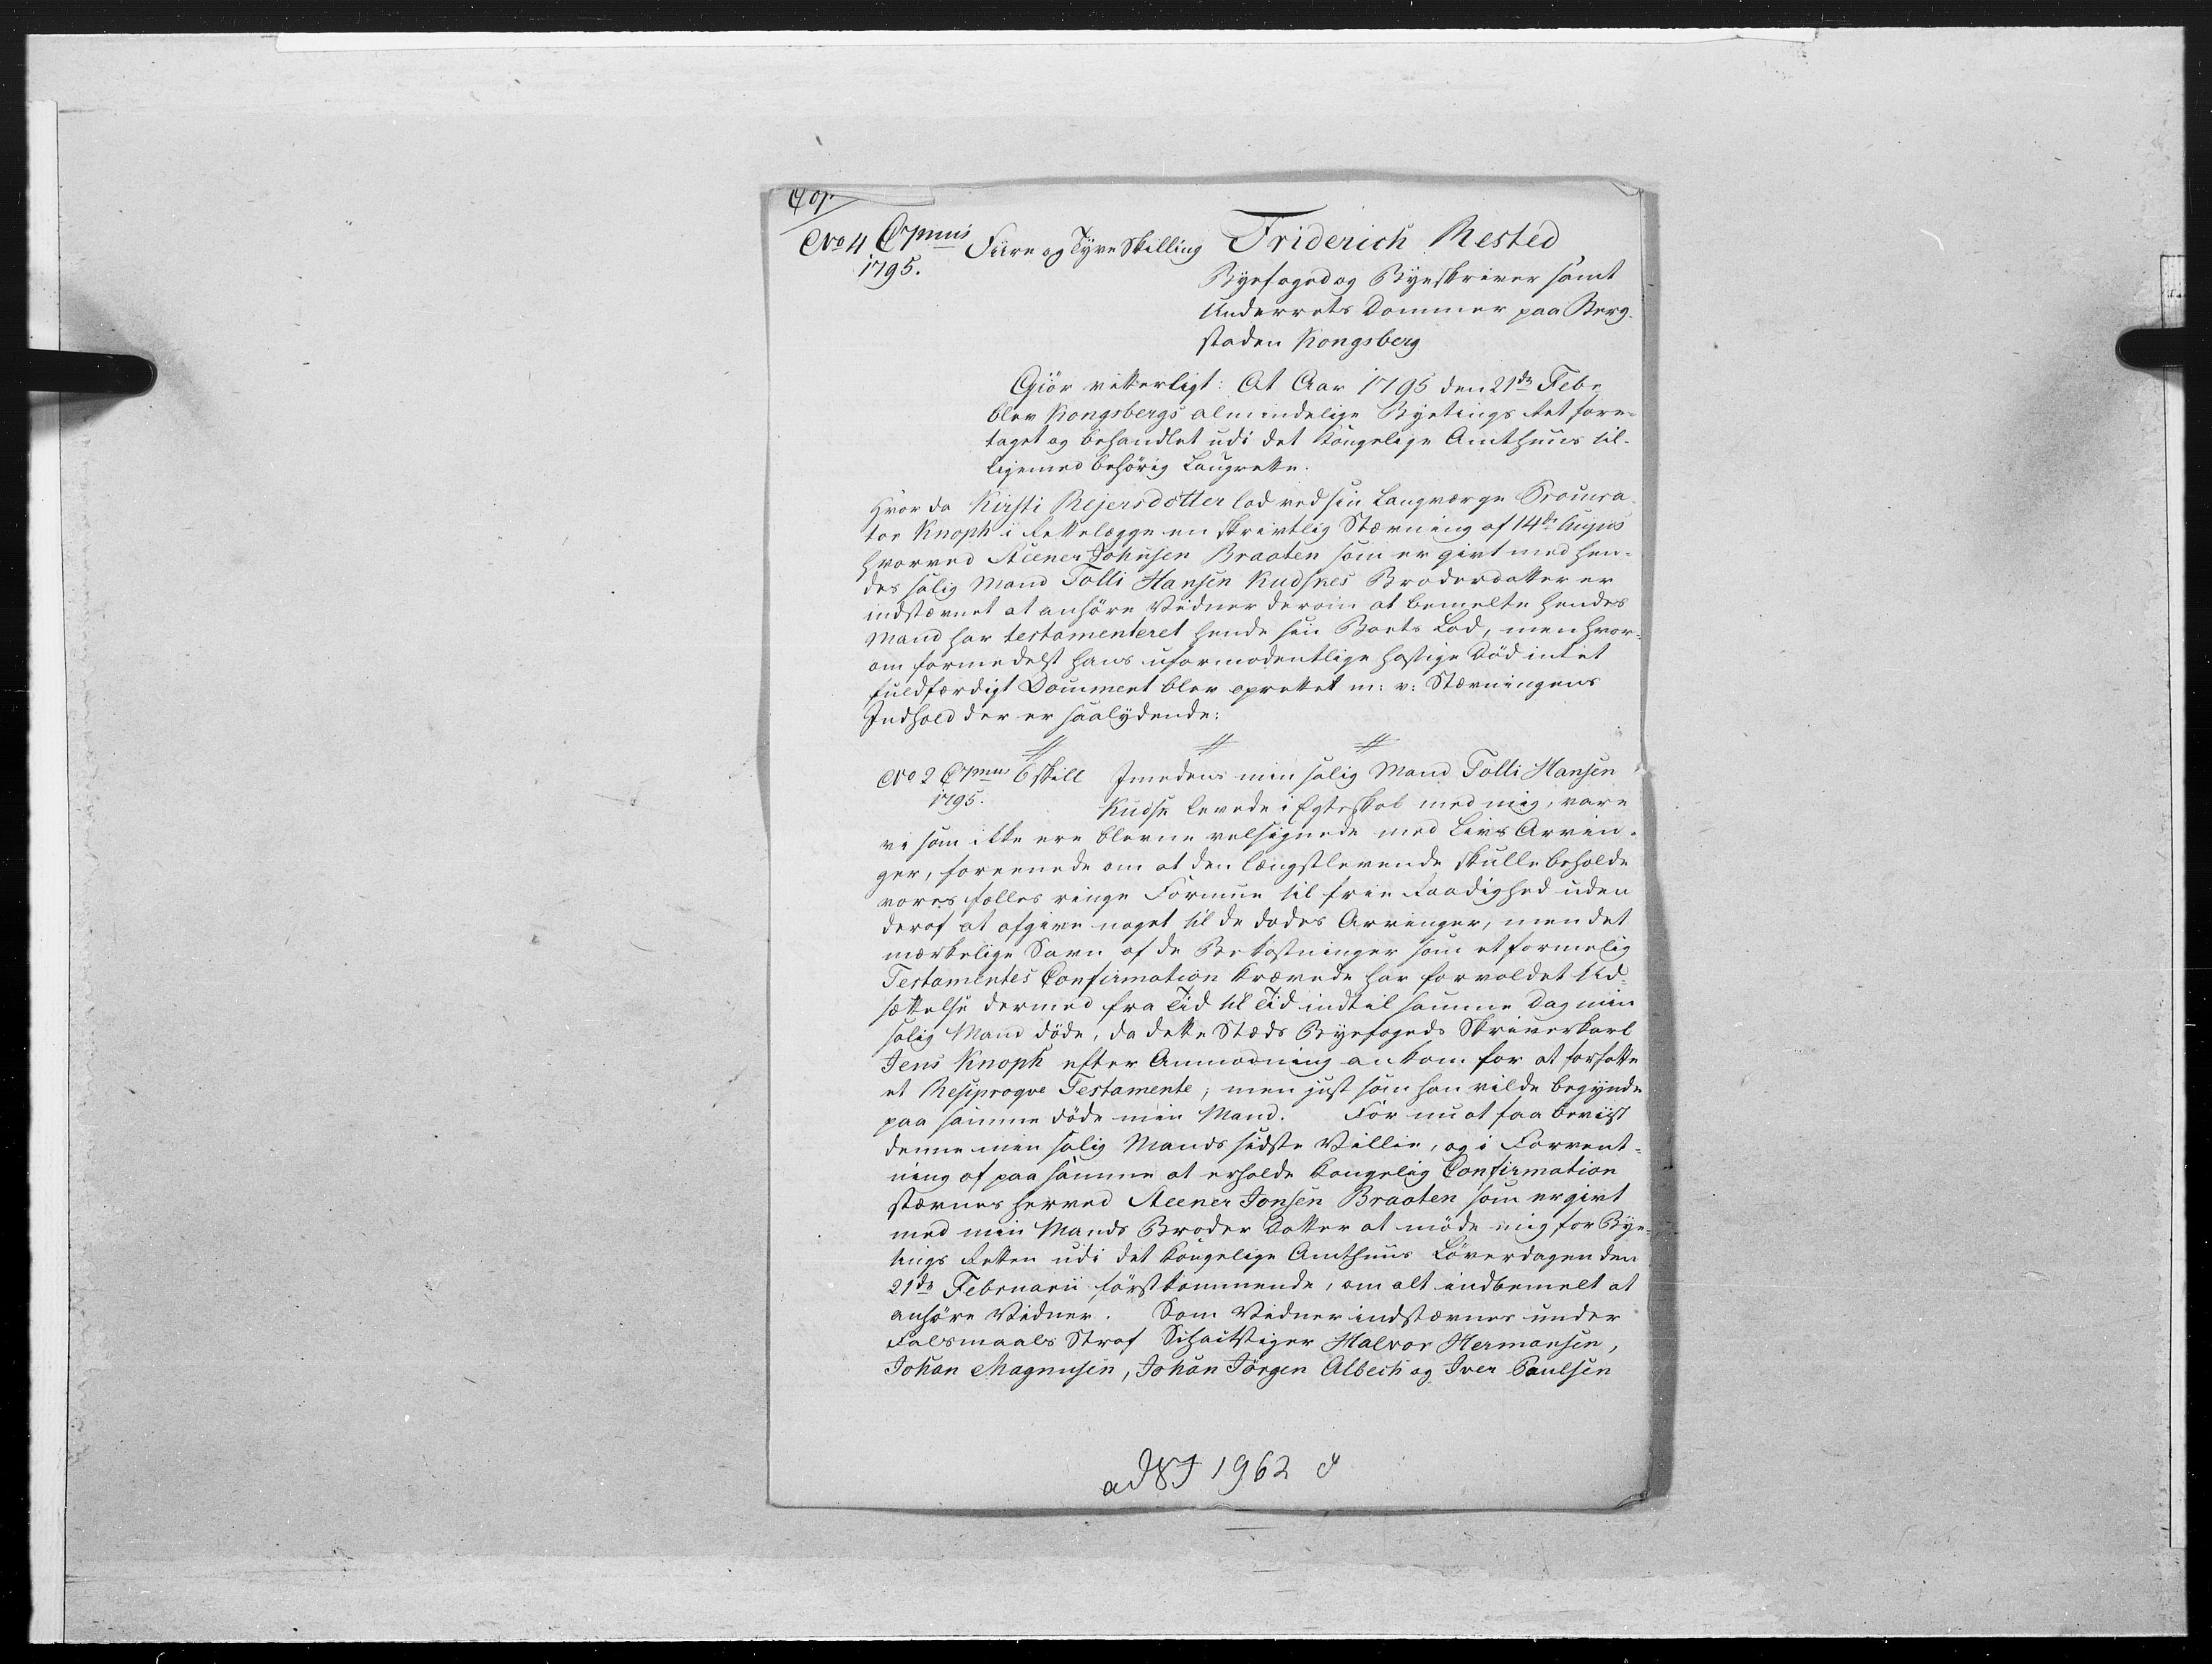 Cop.
No 4 C7mus Fiire og Tyve Skilling Friderich Rested
1795.
Byefoged og Byeskriver samt
Underrets Dommer paa Berg-
staden Kongsberg
Giör vitterligt: At Aar 1795 den 21de Febr
blev Kongsbergs almindelige Byetings Ret fore-
taget og behandlet udi det Kongelige Amthuus til-
ligemed behörig Laugrette.
Hvor da Kirsti Rejersdotter lod ved sin Laugværge Procura-
tor Knoph i Rettelægge en skrivtlig Stævning af 14de hujus
hvorved Steener Johnsen Braaten som er givt med hen-
des salig Mand Tolli Hansen Kudskes Broderdatter er
indstævnet at anhöre Vidner derom at bemelte hendes
Mand har testamenteret hende sin Boets Lod, men hvor-
om formedelst hans uformodentlige hastige Död intet
fuldfærdigt Document blev oprettet m: v: Stævningens
Indhold der er saalydende:
No 2 C7mus 6 skill Imedens min salig Mand Tolli Hansen
1795.
Kudsk levede i Egteskab med mig, vare
vi som ikke ere blevne velsignede med Livs Arvin-
ger, foreenede om at den længstlevende skulle beholde
vores fælles ringe Formue til frie Raadighed uden
deraf at afgive noget til de dödes Arvinger, men det
mærkelige Savn af de Bekostninger som et formelig
Testamentes Confirmation krævede har forvoldet Ud-
sættelse dermed fra Tid til Tid indtil samme Dag min
salig Mand döde, da dette Stæds Byefogeds Skriverkarl
Jens Knoph efter Anmodning ankom for at forfatte
et Resiproqve Testamente; men just som han vilde begynde
paa samme döde min Mand. For nu at faa beviist
denne min salig Mands sidste Villie, og i Forvent-
ning af paa samme at erholde kongelig Confirmation
stævnes herved Steener Jonsen Braaten som er givt
med min Mands Broder Datter at möde mig for Bye-
tings Retten udi det kongelige Amthuus Löverdagen den
21de Februarii förstkommende, om alt indbemelt at
anhöre Vidner. Som Vidner indstævnes under
Falsmaals Straf Schaitstiger Halvor Hermansen,
Johan Magnusen, Johan Jörgen Albech og Iver Paulsen
ad 1962